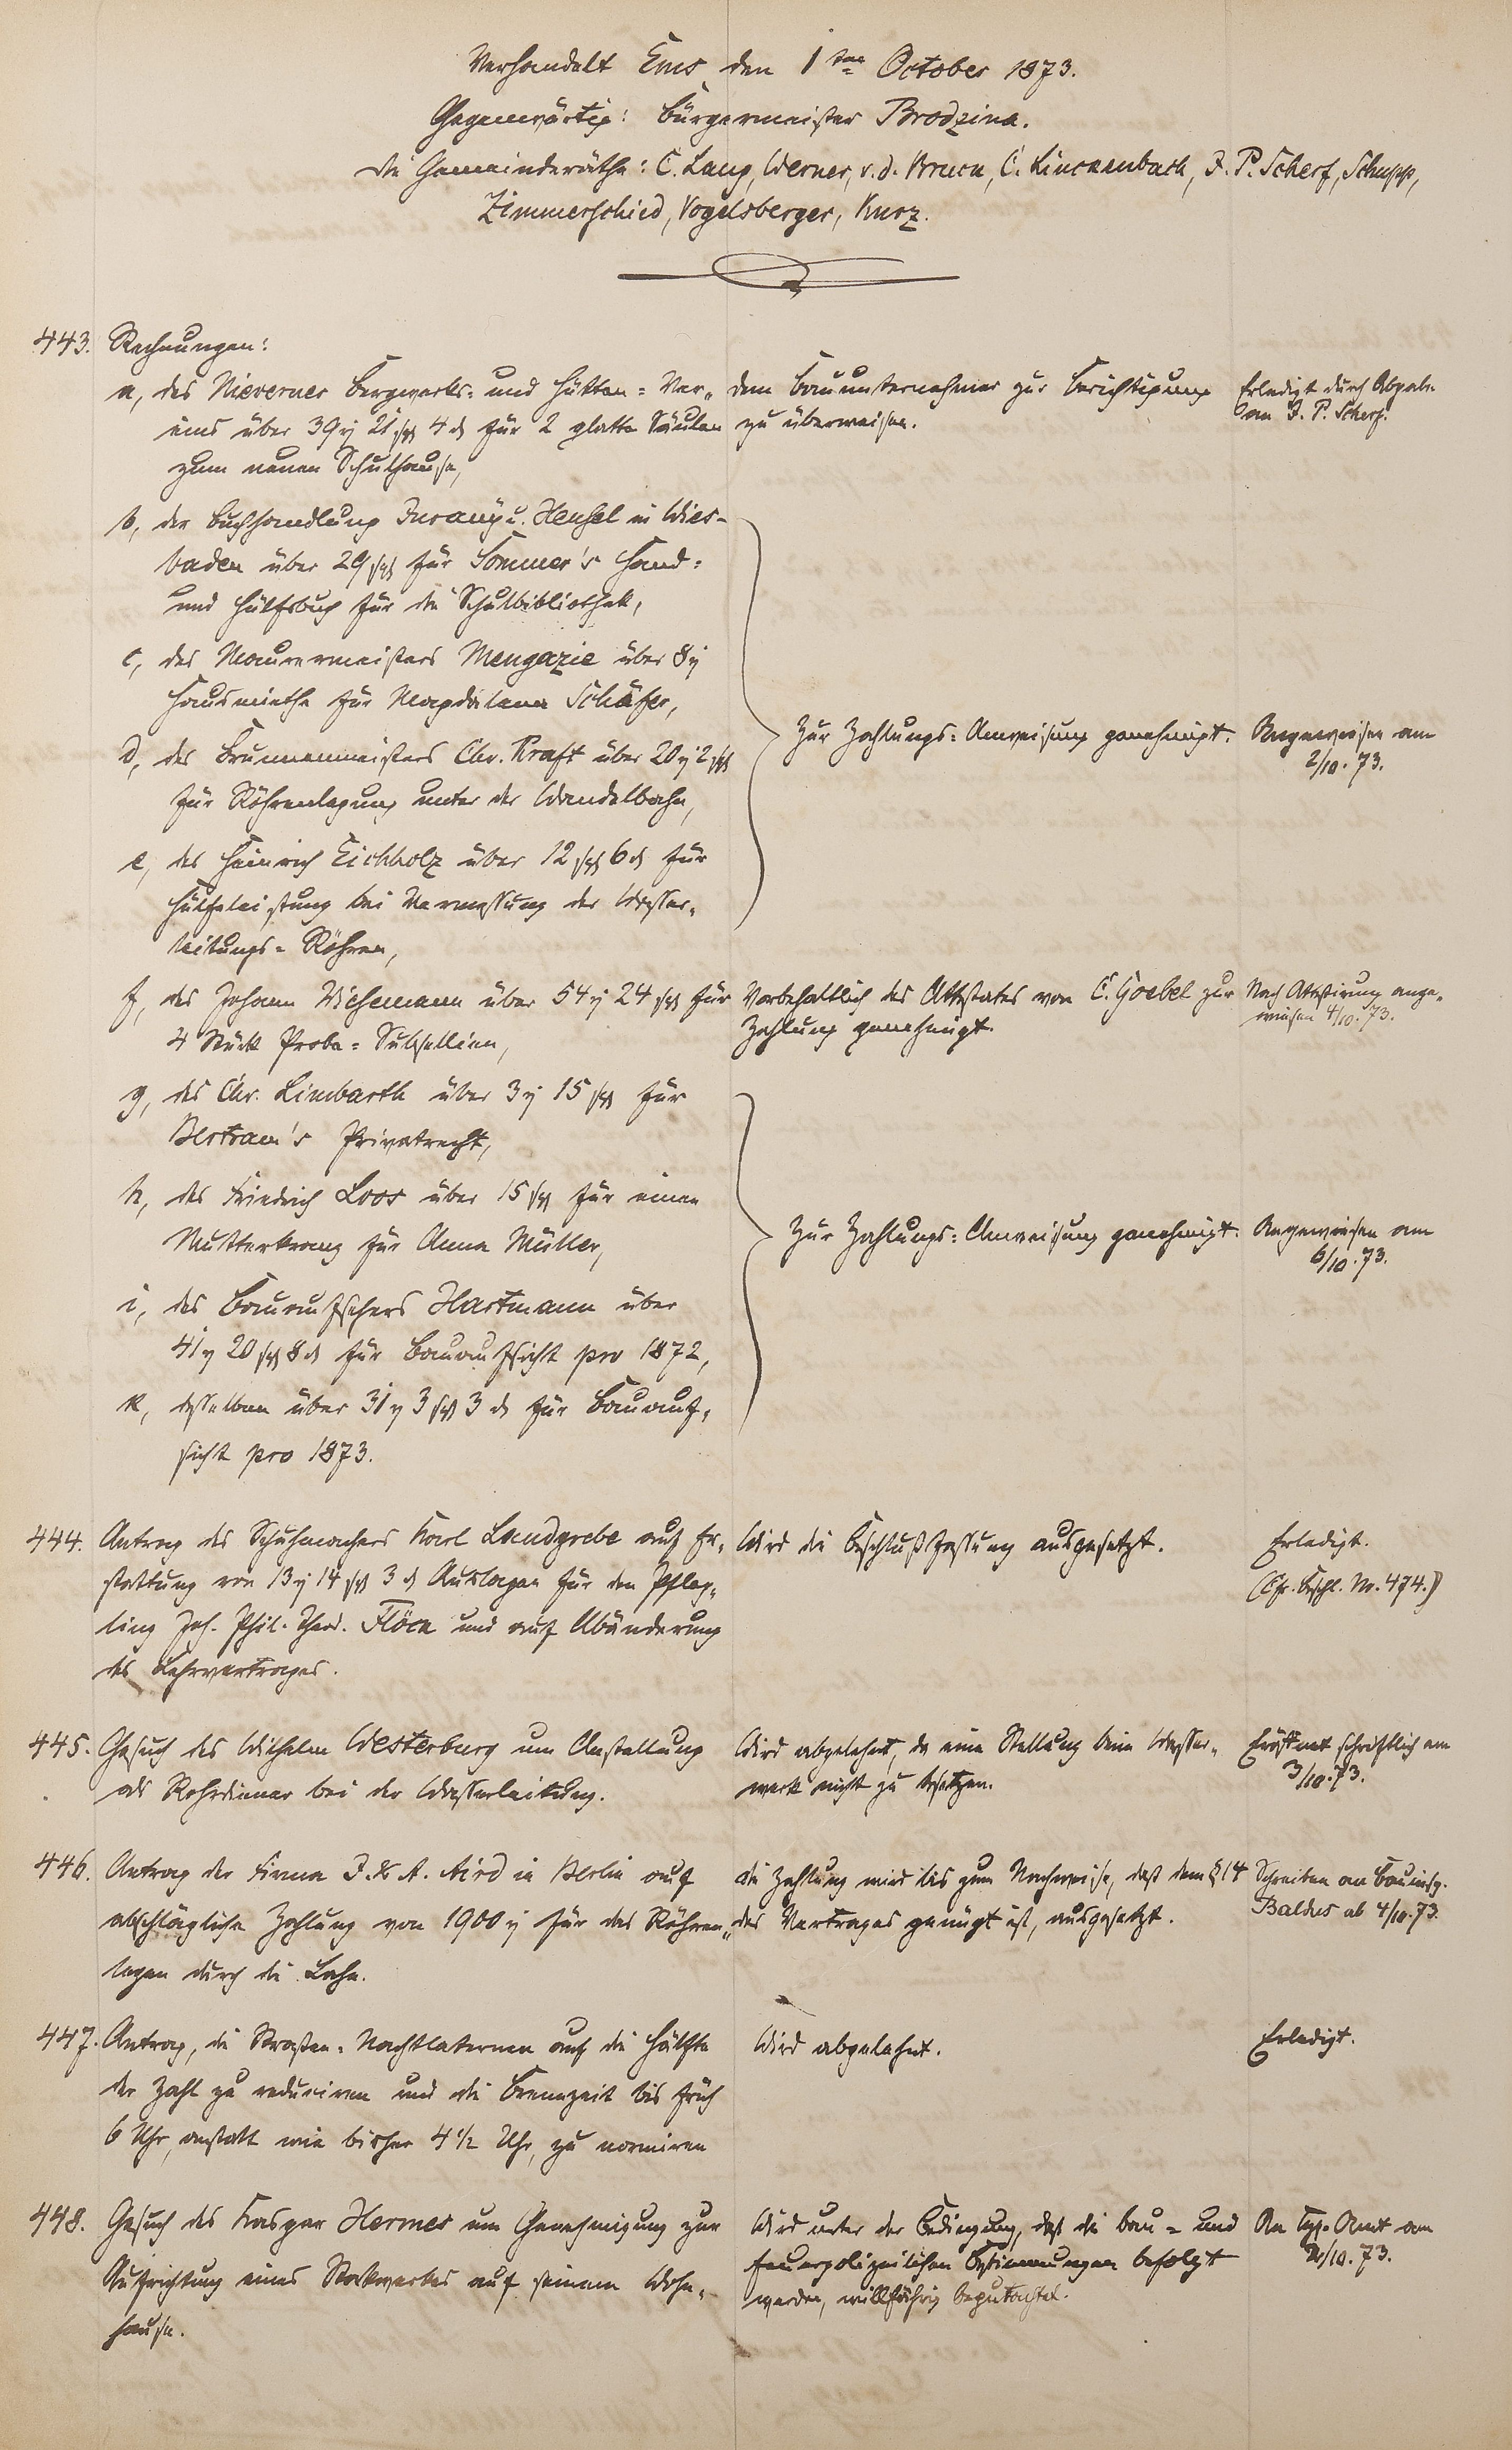 Verhandelt Ems, den 1ten October 1873.
Gegenwärtig: Bürgermeister Brodzina.
Die Gemeinderäthe: C. Lang, Werner, v. d. Bruch, C. Linkenbach, J. P. Scherf, Schupp,
Zimmerschied, Vogelsberger, Kurz.
443. Rechnungen:
a, des Nieverner Bergwerks- und Hütten-Ver-
eins über 39 rt 21 sgr 4 d für 2 glatte Säulen
zum neuen Schulhause,
Dem Bauunternehmer zur Berichtigung
zu überweisen.
Erledigt durch Abgabe
an J. P. Scherf.
b, der Buchhandlung Jurany u. Hensel in Wies-
baden über 29 sgr für Sommer's Hand-
und Hülfsbuch für die Schulbibliothek,
c, des Maurermeisters Mengazie über 8 rt
Hausmiethe für Magdalena Schäfer,
d, des Brunnenmeisters Chr. Kraft über 20 rt 2 sgr
für Röhrenlegung unter der Wandelbahn,
e, des Heinrich Eichholz über 12 sgr 6 d für
Hülfeleistung bei Vermessung der Wasser-
leitungs-Röhren,
Zur Zahlungs-Anweisung genehmigt.
Angewiesen am
2/10. 73.
f, des Johann Wichemann über 54 rt 24 sgr für
4 Stück Probe-Subsellien,
Vorbehaltlich des Attestates von C. Goebel zur
Zahlung genehmigt.
Nach Attestirung ange-
wiesen 4/10. 73.
g, des Chr. Limbarth über 3 rt 15 sgr für
Bertram's Privatrecht,
h, des Friedrich Loos über 15 sgr für einen
Mutterkranz für Anna Müller,
i, des Bauaufsehers Hartmann über
41 rt 20 sgr 8 d für Bauaufsicht pro 1872,
k, desselben über 31 rt 3 sgr 3 d für Bauauf-
sicht pro 1873.
Zur Zahlungs-Anweisung genehmigt.
Angewiesen am
6/10. 73.
444. Antrag des Schuhmachers Karl Landgrebe auf Er-
stattung von 13 rt 14 sgr 3 d Auslagen für den Pfleg-
ling Joh. Phil. Theod. Flöck und auf Abänderung
des Lehrvertrages.
Wird die Beschlußfassung ausgesetzt.
Erledigt.
(Cfr. Beschl. No. 474.)
445. Gesuch des Wilhelm Westerburg um Anstellung
als Rohrdiener bei der Wasserleitung.
Wird abgelehnt, da eine Stellung beim Wasser-
werk nicht zu besetzen.
Eröffnet schriftlich am
3/10. 73.
446. Antrag der Firma J. & A. Aird in Berlin auf
abschlägliche Zahlung von 1900 rt für das Röhren-
legen durch die Lahn.
Die Zahlung wird bis zum Nachweise, daß dem § 14
des Vertrages genügt ist, ausgesetzt.
Schreiben an Bauinsp.
Baldus ab 4/10. 73.
447. Antrag, die Straßen-Nachtlaternen auf die Hälfte
der Zahl zu reduciren und die Brennzeit bis früh
6 Uhr, anstatt wie bisher 4 1/2 Uhr, zu normiren
Wird abgelehnt.
Erledigt.
448. Gesuch des Kaspar Hermes um Genehmigung zur
Aufrichtung eines Stockwerkes auf seinem Wohn-
hause.
Wird unter der Bedingung, daß die bau- und
feuerpolizeilichen Bestimmungen befolgt
werden, willfährig begutachtet.
An Kgl. Amt am
2/10. 73.